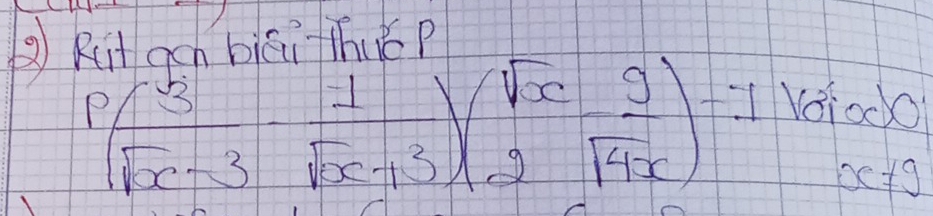 2) Rút gọn biểu thức P
P(3/(√x - 3) - 1/(√x + 3))(√x/2 - 9/√4x) - 1 Với x>0
x≠9